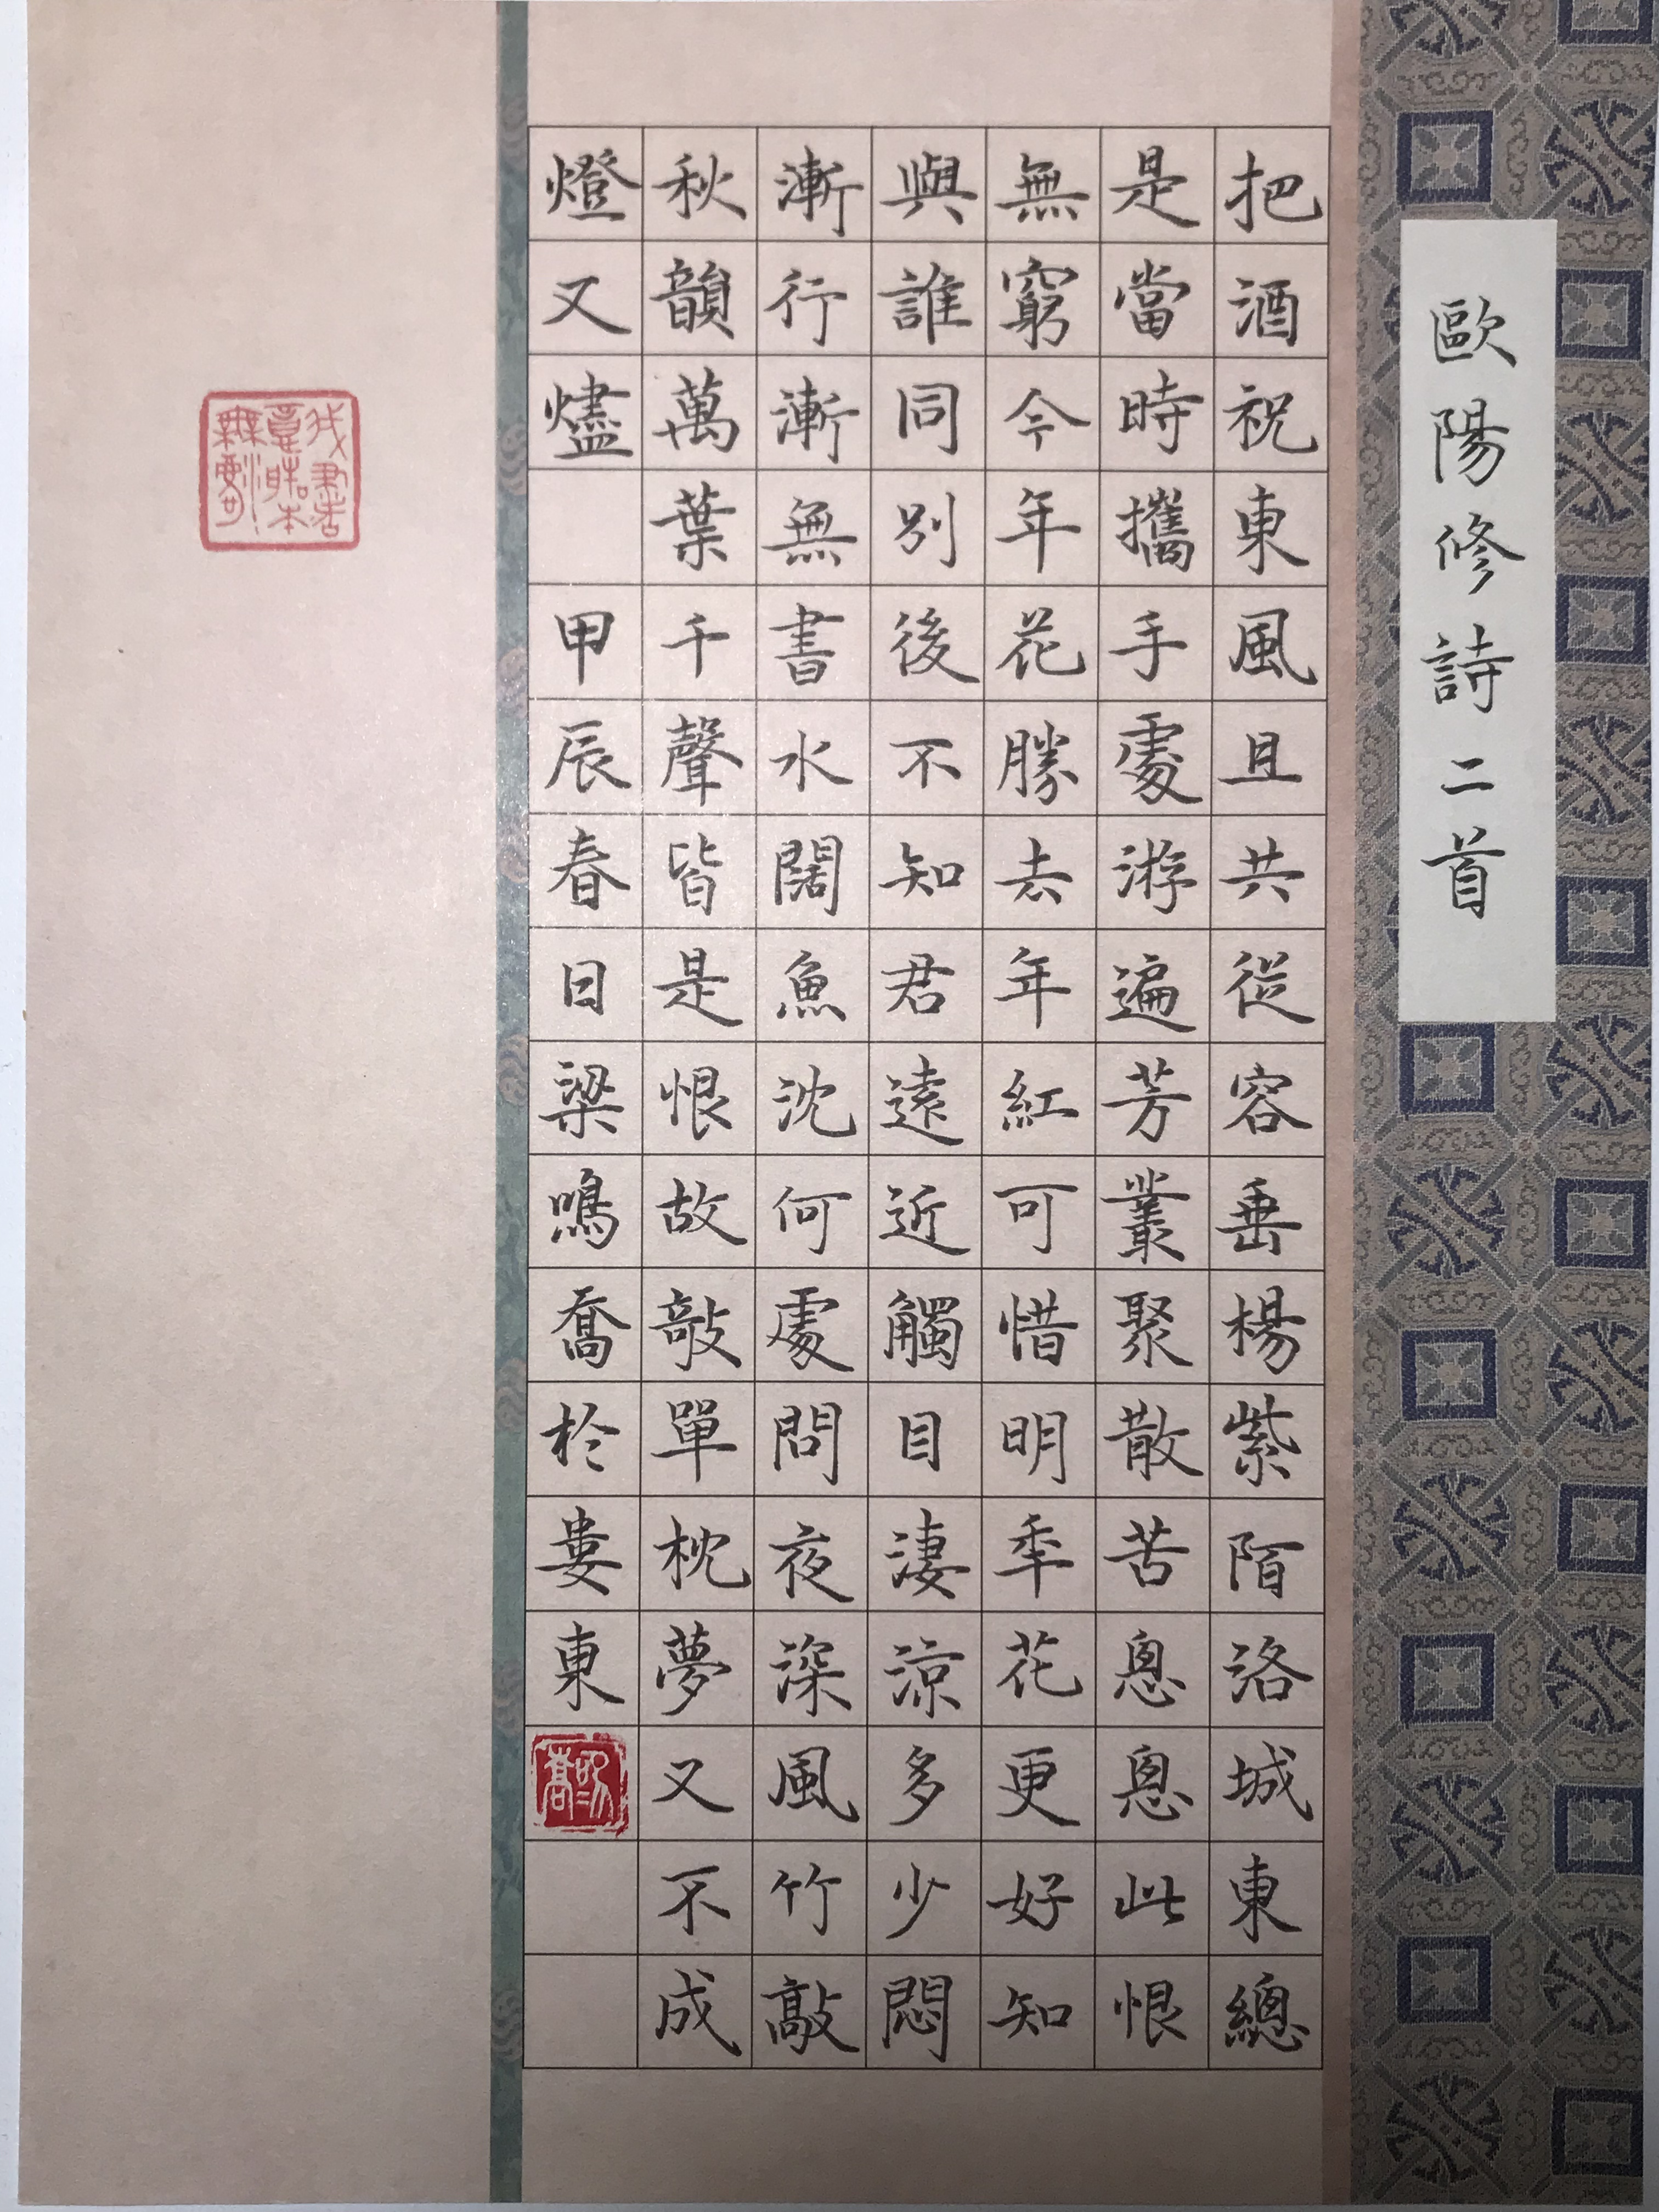 歐陽修詩二首
把酒祝東風且共從容垂楊紫陌洛城東總
是當時攜手處游遍芳叢聚散苦悤悤此恨
無窮今年花勝去年紅可惜明年花更好知
與誰同別後不知君遠近觸目淒涼多少悶
漸行漸漸無書水闊魚沈何處問夜深風竹敲
秋韻萬葉千聲皆是恨故敧單枕夢又不成
燈又燼 甲辰春日梁鳴喬於婁東